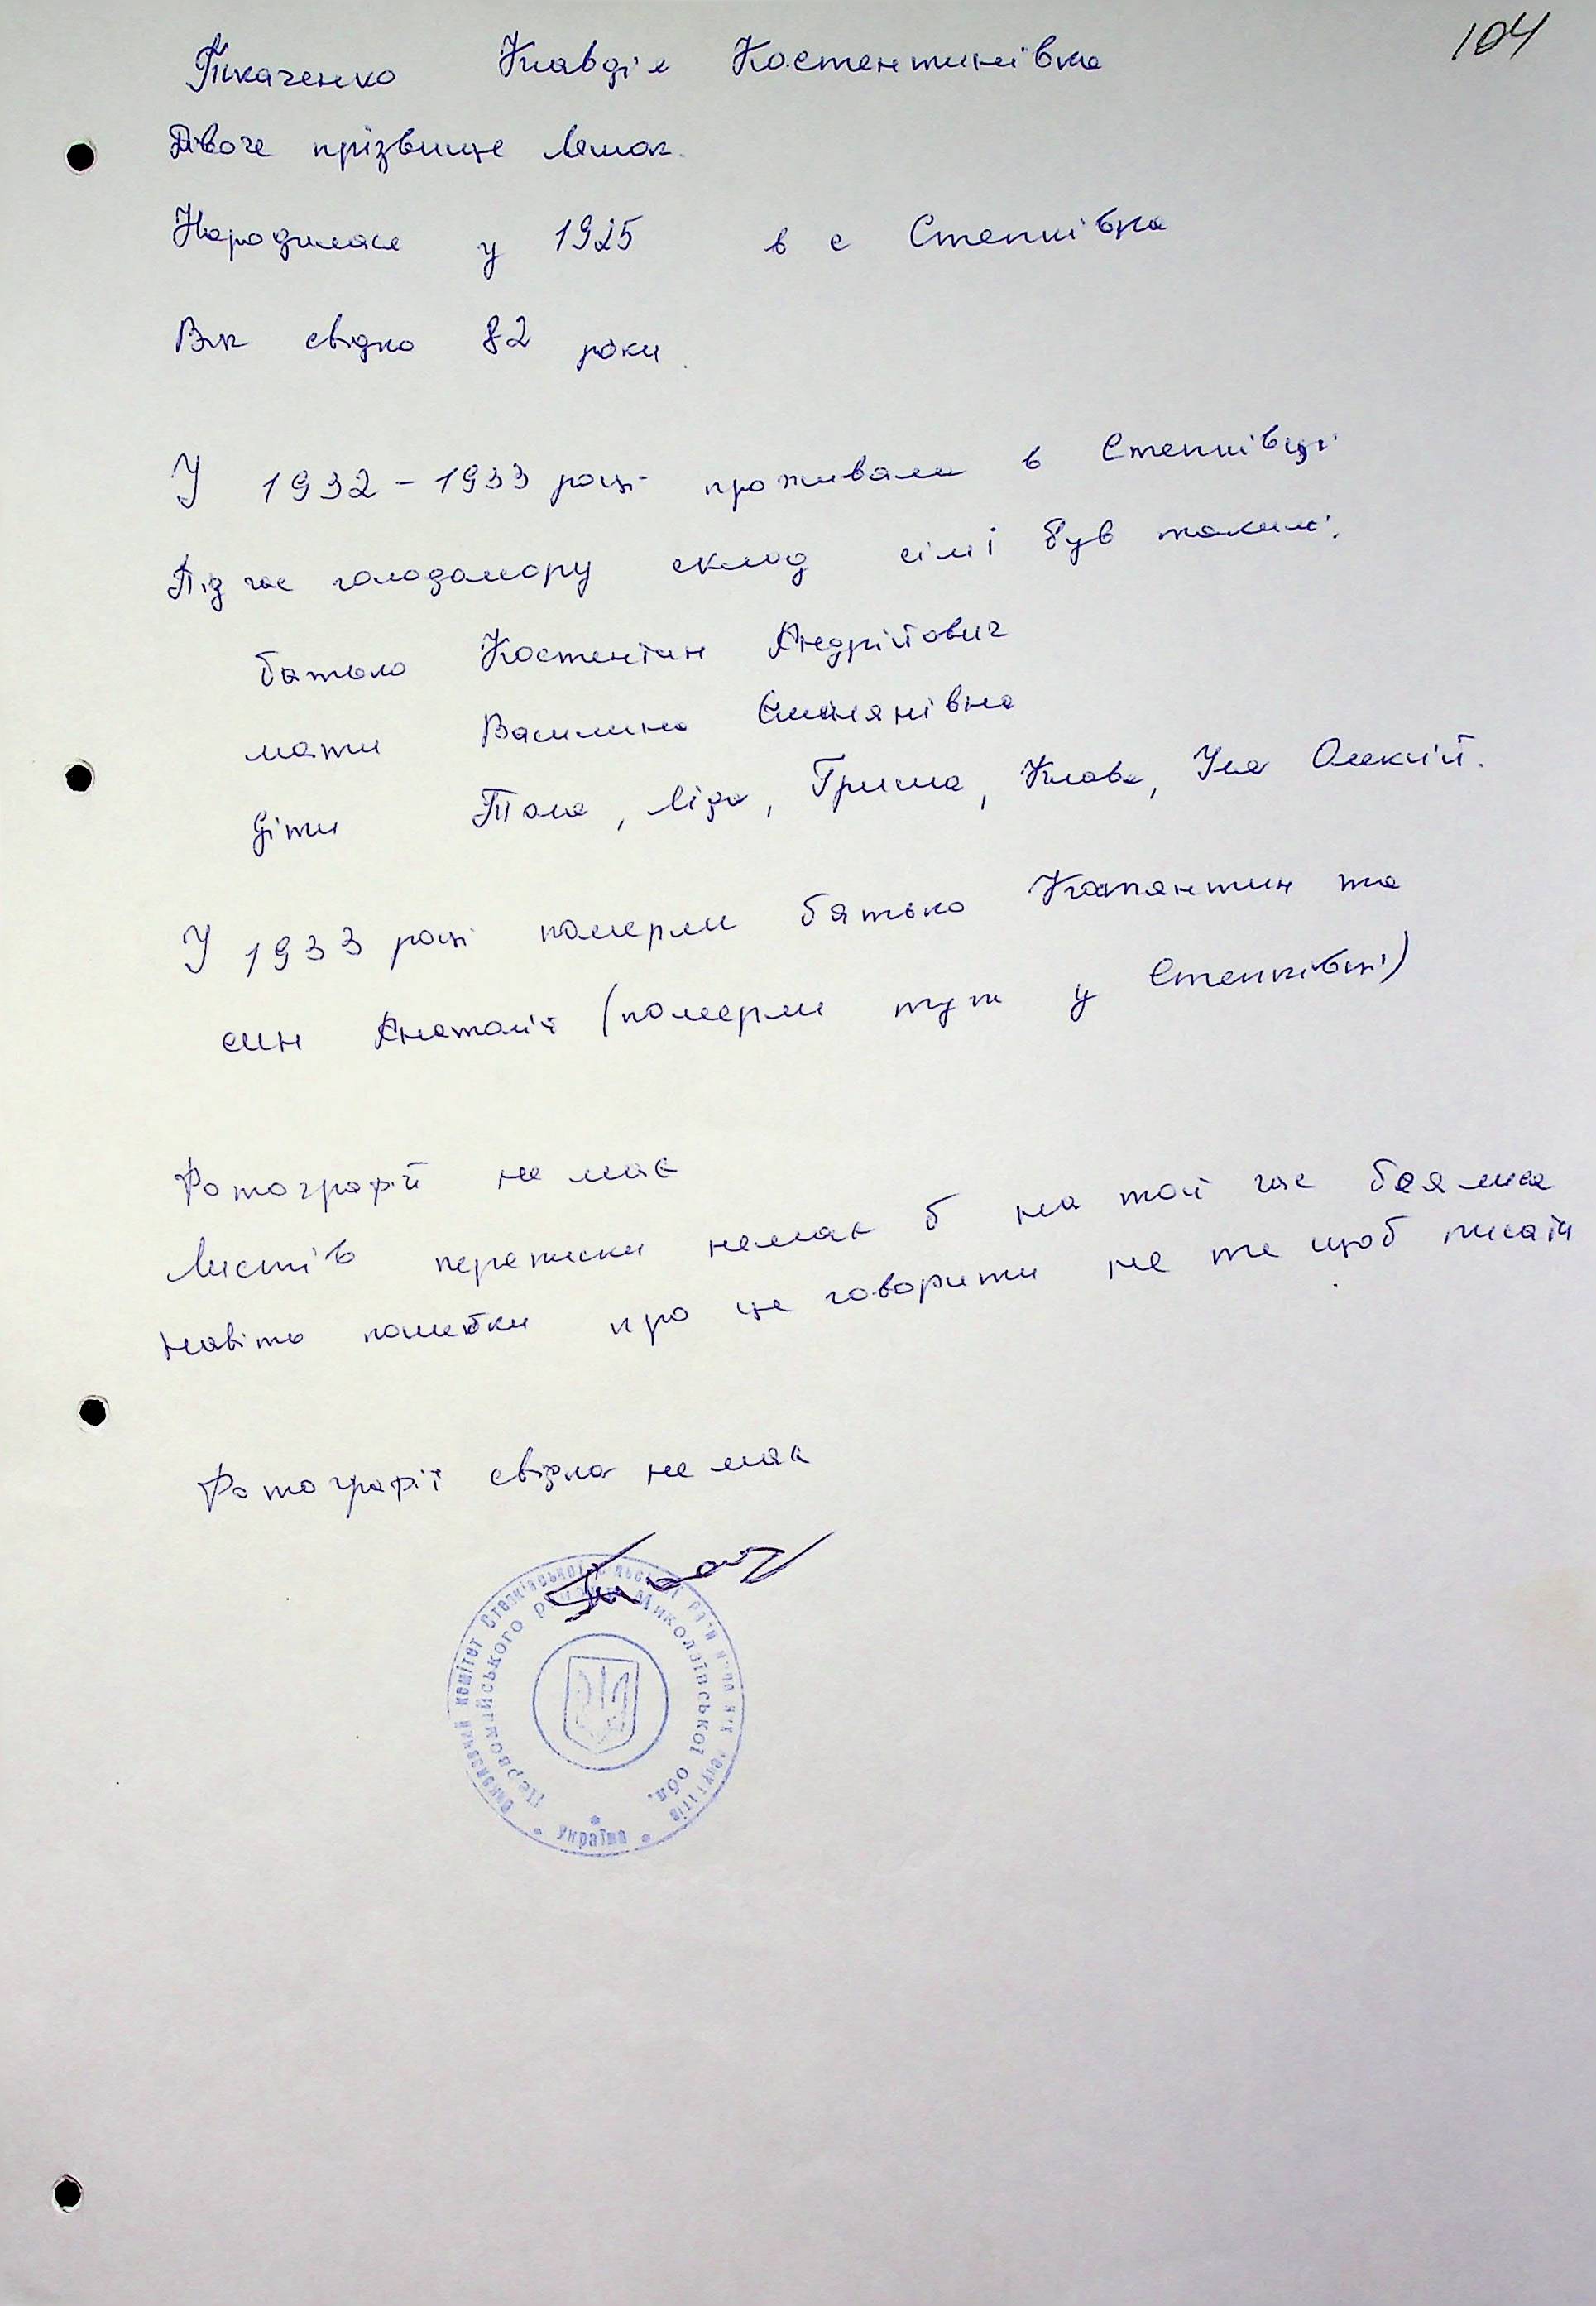 104
Ткаченко Клавдія Костентинівна
Дівоче прізвище Ляшок.
Народилася у 1925 в с Степківка
Вік свідка 82 роки.
У 1932-1933 році проживали в Степківці
Під час голодомору склад сімі був таким:
батько Костентин Андрійович
мати Василина Омелянівна
діти Толя, Ліда, Гриша, Клава, Іля Олексій.
У 1933 році померли батько Костянтин та
син Анатолій (померли тут у Степківці)
Фотографії не має
Листів переписки немає б на той час боялися
навіть помітки про це говорити не те щоб писати
Фотографії свідка не має
Виконавчий комітет Степківської сільської ради народних депутатів
Первомайського району Миколаївської обл.
* Україна *